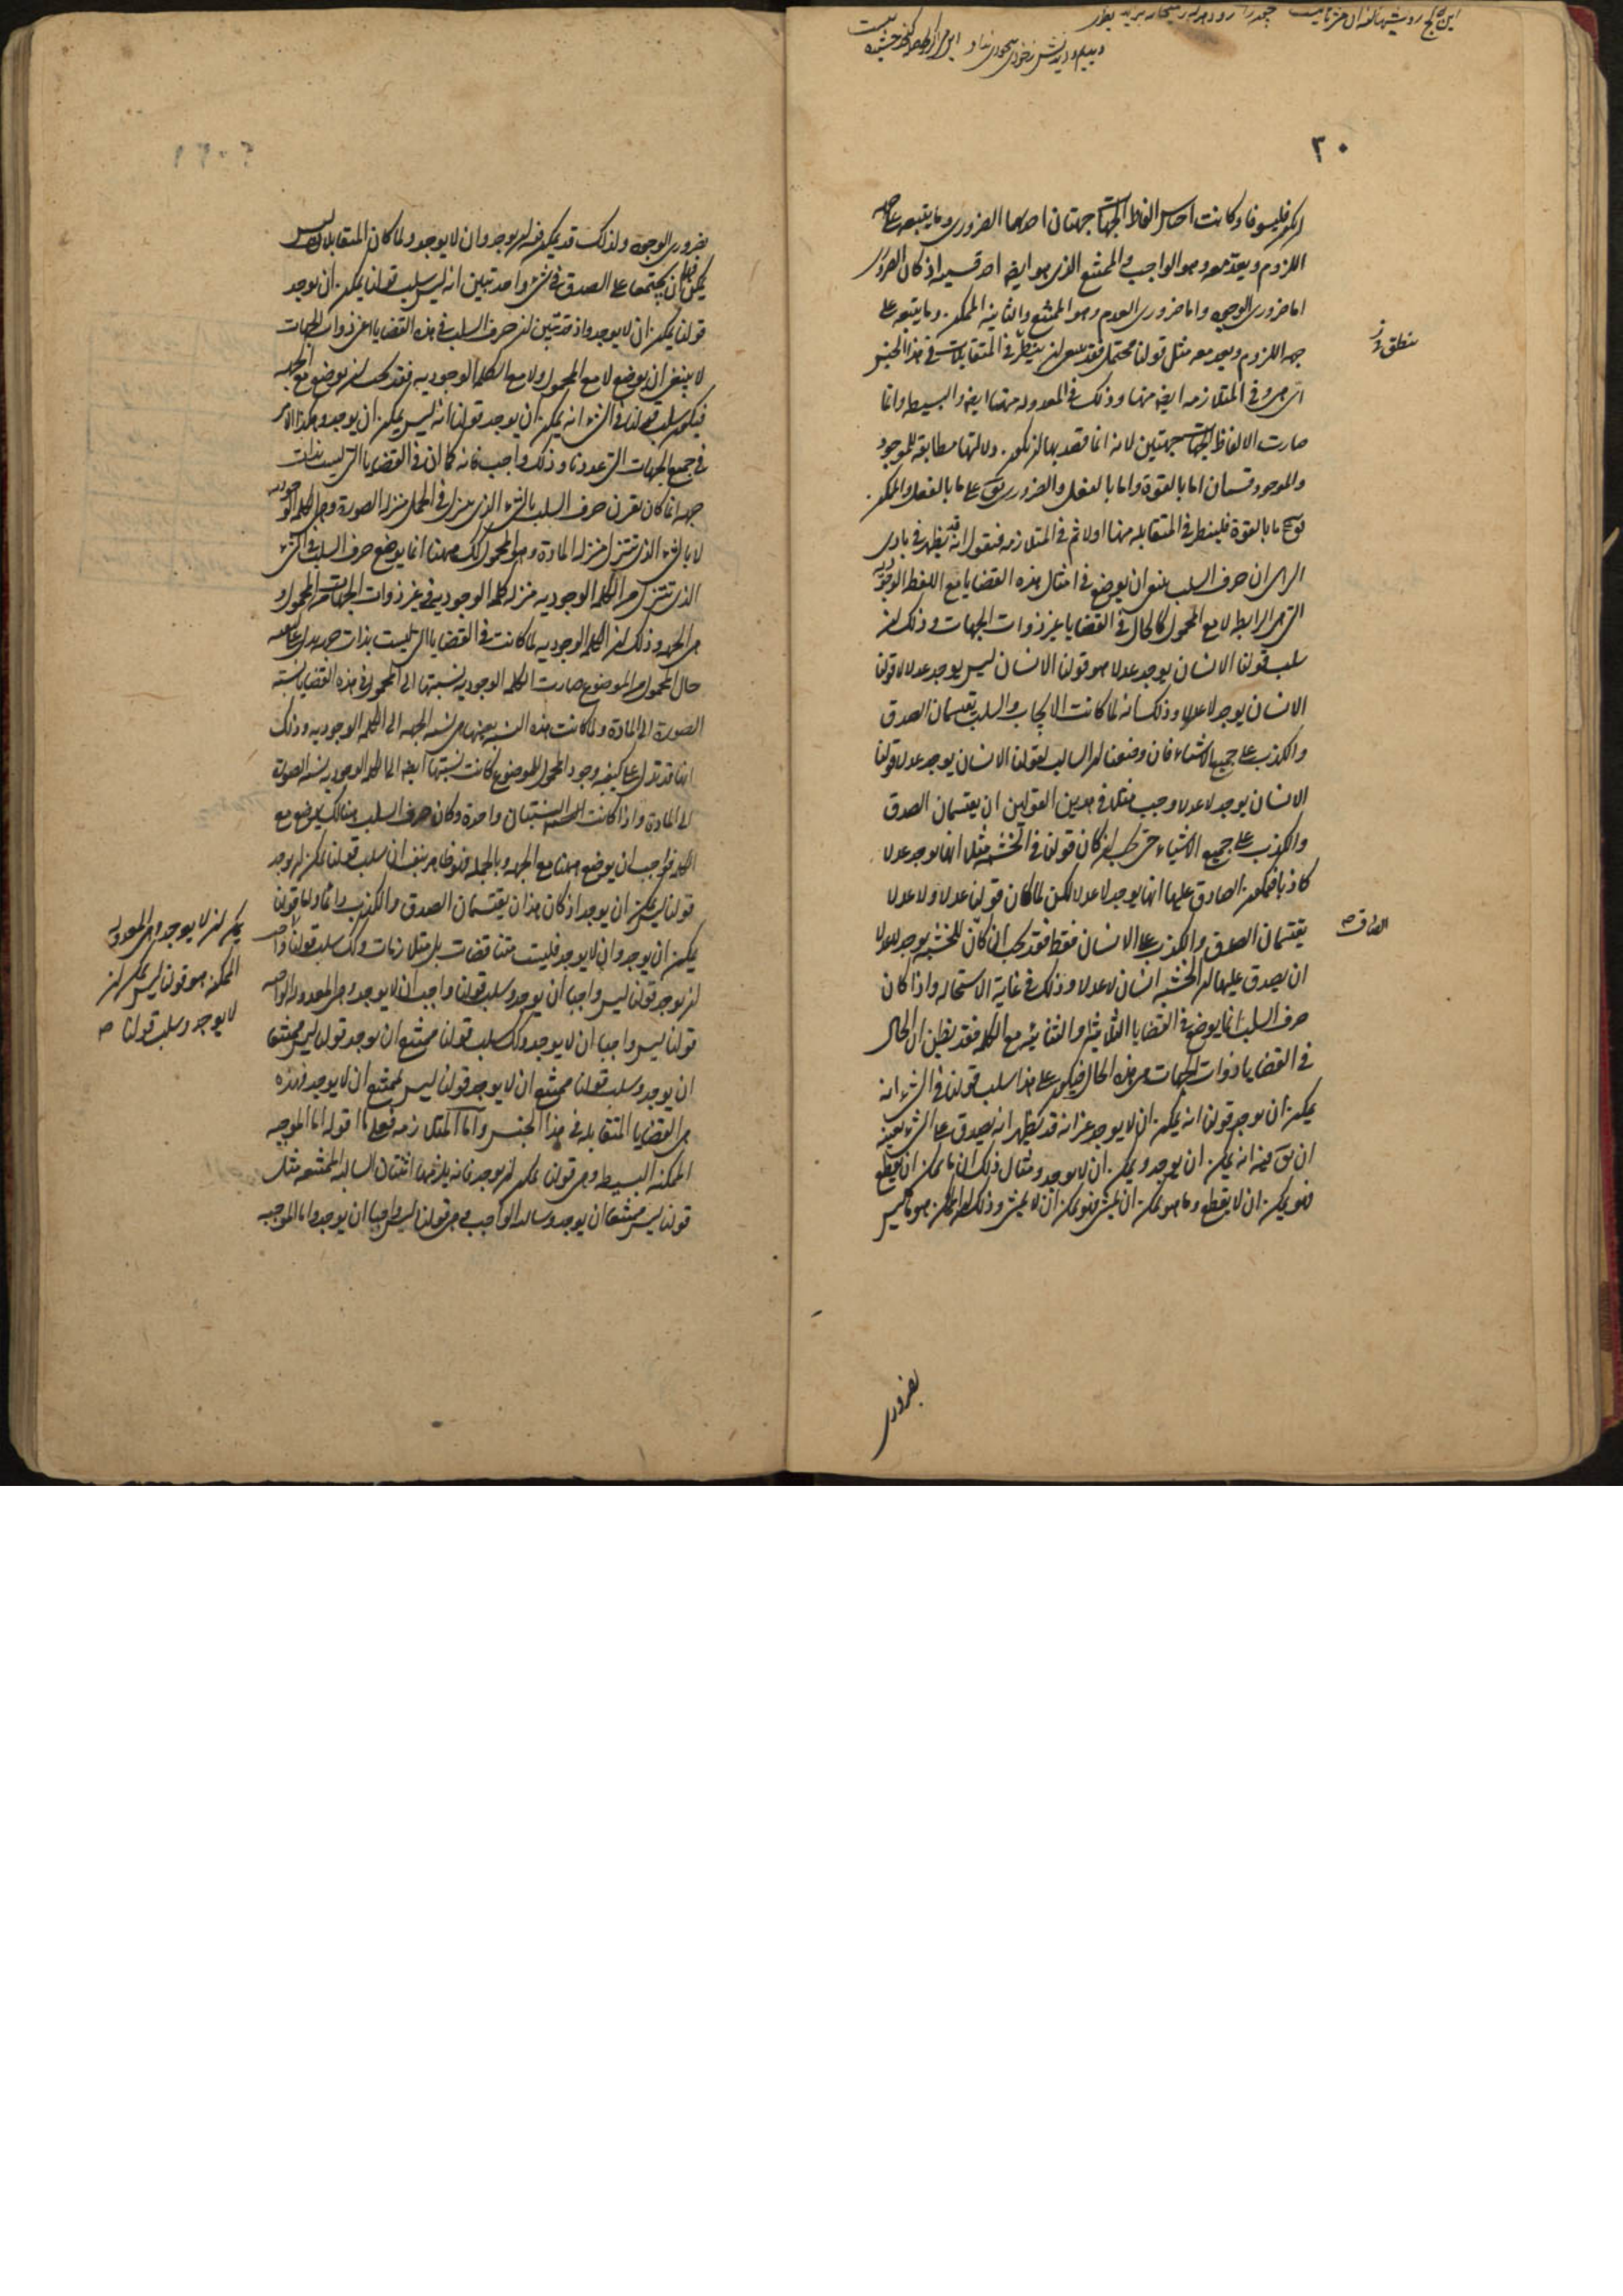 ٣٠
اللزوم ويعد معه وهو الواجب والممتنع الذى هو ايضا احد قسميه اذ كان الضرورى
اما ضرورى الوجود واما ضرورى العدم وهو الممتنع والثانية الممكن وما يتبعه على
جهة اللزوم ويعد معه مثل قولنا محتمل فقد ينبغى ان ينظر فى المتقابلات فى هذا الجنس
اى هى وفى المتلازمة ايضا منها وذلك فى المعدولة منها ايضا والبسيطة وانما
صارت الالفاظ الجهات جهتين لانه انما قصد بها ان يكون دلالتها مطابقة للموجود
والموجود قسمان اما بالقوة واما بالفعل والضرورى يق على ما بالفعل والممكن
يق على ما بالقوة فلينظر فى المتقابلة منها اولا ثم فى المتلازمة فنقول انه قد يظهر فى بادى
الراى ان حرف السلب ينبغى ان يوضع فى امثال هذه القضايا مع اللفظ الوجودية
التى هى الرابط لا مع المحمول كالحال فى القضايا غير ذوات الجهات وذلك ان
سلب قولنا الانسان يوجد عدلا هو قولنا الانسان ليس يوجد عدلا لا قولنا
الانسان يوجد لا عدلا وذلك انه لما كانت الايجاب والسلب يقتسمان الصدق
والكذب على جميع الاشياء فان وضعنا ان السالب لقولنا الانسان يوجد عدلا قولنا
الانسان يوجد لا عدلا وجب مثلا فى هذين القولين ان يقتسمان الصدق
والكذب على جميع الاشياء حتى يجب ان كان قولنا فى الخشبة مثلا انها يوجد عدلا
كاذبا فيكون الصادق عليها انها يوجد لا عدلا لكن لما كان قولنا عدلا ولا عدلا
يقتسمان الصدق والكذب على الانسان فقط فقد يجب ان كان للخشبة يوجد لا عدلا
ان يصدق عليها ان الخشبة انسان لا عدلا وذلك فى غاية الاستحالة واذا كان
حرف السلب انما يوضع فى القضايا الثلاثية والثنائية مع الكلمة فقد يظن ان الحال
فى القضايا ذوات الجهات هى هذه الحال فيكون على هذا سلب قولنا فى الشىء انه
يمكن ان يوجد قولنا انه يمكن ان لا يوجد غير انه قد يظهر انه يصدق على الشىء بعينه
ان يق فيه انه يمكن ان يوجد ويمكن ان لا يوجد ومثال ذلك ان ما يمكن ان يقطع
فلو يمكن ان لا يقطع وما هو يمكن ان يمشى فهو يمكن ان لا يمشى وذلك ان الممكن هو ما ليس
بضرورى
بضرورى الوجود ولذلك قد يمكن فيه ان يوجد وان لا يوجد ولما كان المتقابلان ليس
يمكن فيهما ان يجتمعا على الصدق فى شىء واحد تبين انه ليس سلب قولنا يمكن ان يوجد
قولنا يمكن ان لا يوجد واذ قد تبين ان حرف السلب فى هذه القضايا اعنى ذوات الجهات
لا ينبغى ان يوضع لا مع المحمول ولا مع الكلمة الوجودية فقد يجب ان يوضع مع الجهة
فيكون سلب قولنا فى الشىء انه يمكن ان يوجد قولنا انه ليس يمكن ان يوجد وهكذا الامر
فى جميع الجهات التى عددنا وذلك واجب فانه كما ان فى القضايا التى ليست بذات
جهة انما كان يقرن حرف السلب بالشىء الذى ينزل فى الحمل منزلة الصورة وهى الكلمة الوجودية
لا بالشىء الذى تتنزل منزلة المادة وهى المحمول كك ههنا انما يوضع حرف السلب فى الشىء
الذى تتنزل من الكلمة الوجودية منزلة الكلمة الوجودية فى غير ذوات الجهات من المحمول و
هى الجهة وذلك ان الكلمة الوجودية لما كانت فى القضايا التى ليست بذات جهة يدل على كيفية
حال المحمول من الموضوع صارت الكلمة الوجودية نسبتها الى المحمول فى هذه القضايا نسبة
الصورة الى المادة ولما كانت هذه النسبة بعينها هى نسبة الجهة الى الكلمة الوجودية وذلك
انها قد تدل على كيفية وجود المحمول للموضوع كانت نسبتها ايضا الى الكلمة الوجودية نسبة الصورة
الى المادة واذا كانت النسبتان واحدة وكان حرف السلب هنالك يوضع مع
الكلمة فواجب ان يوضع ههنا مع الجهة وبالجملة فهو ظاهر بنفسه ان سلب قولنا يمكن ان يوجد
قولنا ليس يمكن ان يوجد اذ كان هذان يقتسمان الصدق والكذب دائما واما قولنا
يمكن ان يوجد وان لا يوجد فليست متناقضات بل متلازمات وكك سلب قولنا واجب
ان يوجد قولنا ليس واجبا ان يوجد وسلب قولنا واجب ان لا يوجد وهى المعدولة الواجبة
قولنا ليس واجبا ان لا يوجد وكك سلب قولنا ممتنع ان يوجد قولنا ليس ممتنعا
ان يوجد وسلب قولنا ممتنع ان لا يوجد قولنا ليس ممتنع ان لا يوجد فهذه
هى القضايا المتقابلة فى هذا الجنس واما المتلازمة فعلى ما اقوله اما الموجبة
الممكنة البسيطة وهى قولنا يمكن ان يوجد فانه يلزمها اثنتان السالبة الممتنعة مثل
قولنا ليس ممتنعا ان يوجد وسالبة الواجب وهى قولنا ليس واجبا ان يوجد واما الموجبة
يمكن ان لا يوجد وهى المعدولة
الممكنة هو قولنا ليس يمكن ان
لا يوجد وسلب قولنا